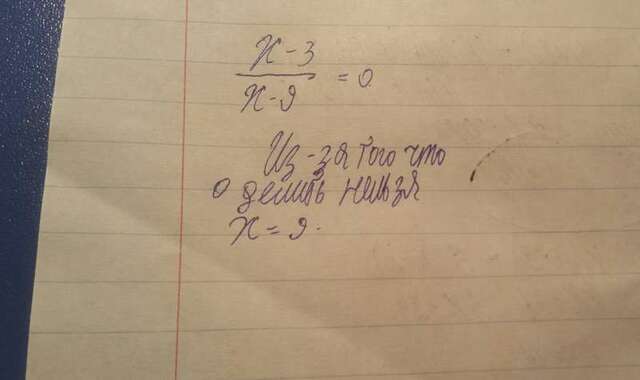 х-3
х-9 = 0
Из-за того что
0 делить нельзя
х = 9.